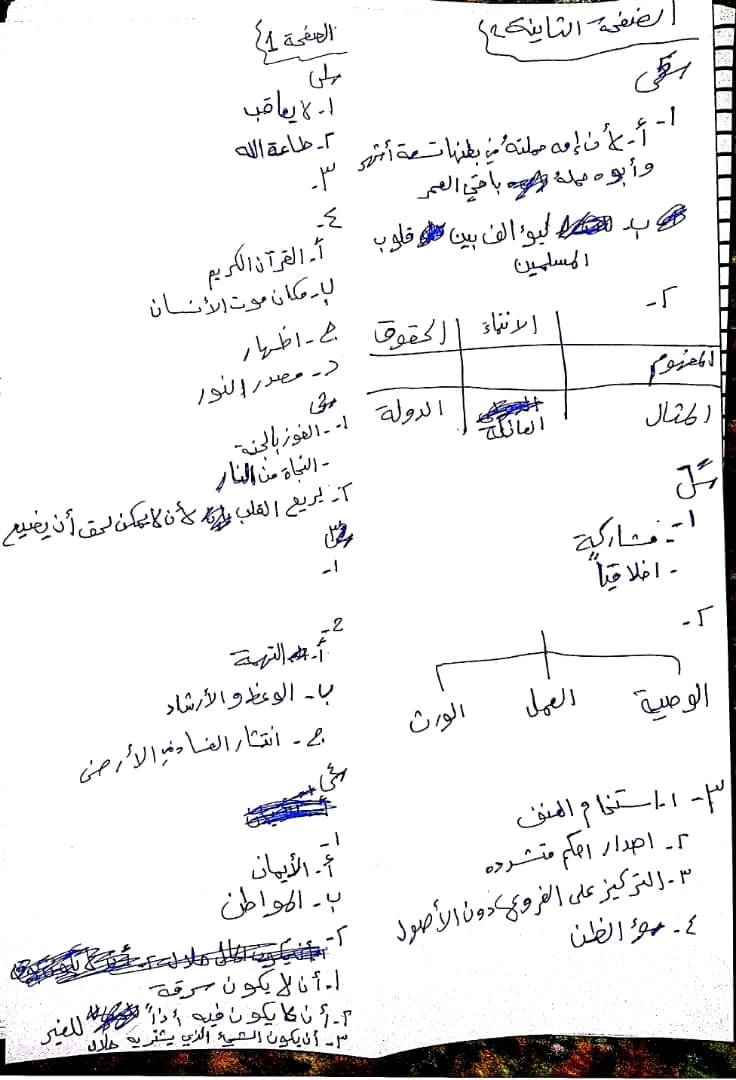 الصفحة 1
س1
١- لا يعاقب
٢- طاعة الله
٣-
٤-
أ- القرآن الكريم
ب- مكان موت الأنسان
ج- اظهار
د- مصدر النور
س٢
١- الفوز بالجنة
- النجاة من النار
٢- يريح القلب لأن لا يمكن لحق أن يضيع
س٣
١-
2-
أ- التهمة
ب- الوعظ والأرشاد
ج- انتشار الفساد في الأرض
س٤
١-
أ- الأيمان
ب- المواطن
٢-
١- أن لا يكون سرقة
٢- أن لا يكون فيه أذاً للغير
٣- أن يكون الشيء الذي يشتريه حلال
الصفحة الثانية 2
١-
أ- لأن إمه حملته في بطنها تسعة أشهر
وأبوه حمله باقي العمر
ب- ليؤالف بين قلوب
المسلمين
٢-
الانتماء | الحقوق
المفهوم
المثال | العائلة | الدولة
١- مشاركة
- اخلاقياً
٢-
الوصية العمل الورث
٣- ١- استخدام العنف
٢- اصدار احكم متشدده
٣- التركيز على الفروع دون الأصول
٤- سوء الظن